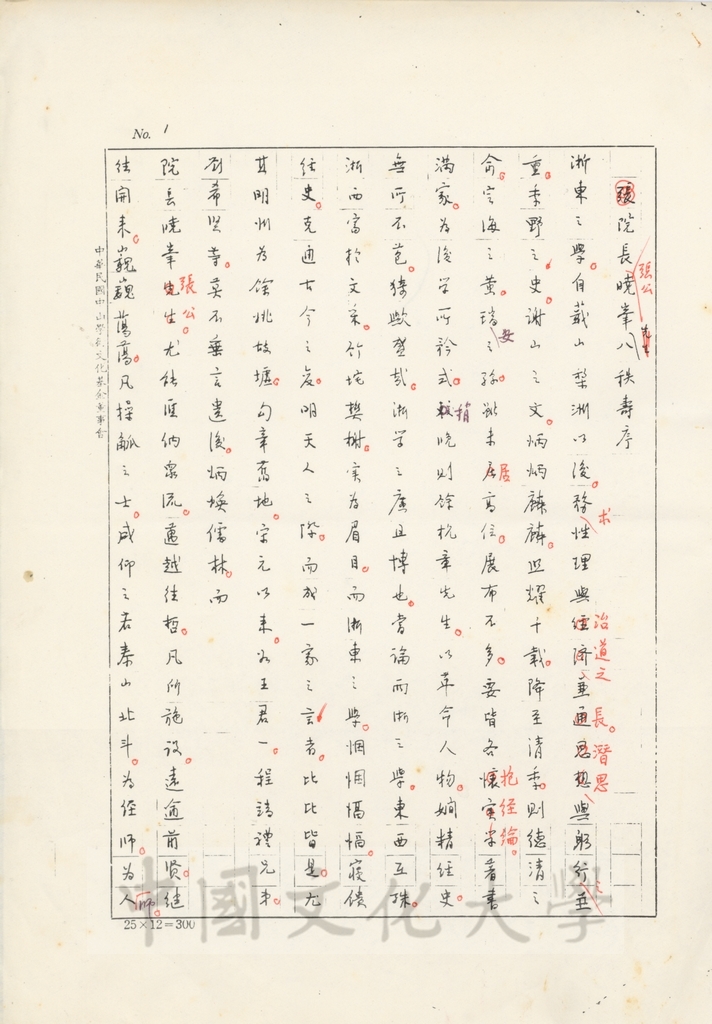 No. 1
張院長曉峯八秩壽序
張公
先生
浙東之學。自蕺山梨洲以後。務性理與經濟並通思想與躬行並
术
治道之長。潛思
重。季野之史。謝山之文。炳炳麟麟。照耀千載。降至清季。則德清之
俞。定海之黃。瑞之孫。雖未居高位。展布不多。要皆各懷宏著書
安
居
抱經綸。
滿家。為後學所矜式。較晚則餘杭章先生。以革命人物。嫻精經史。
稍
無所不苞。猗歟盛哉。浙学之廣且博也。嘗論兩浙之學。東西互殊。
浙西富於文采。竹垞樊榭。實為眉目。而浙東之學。悃悃愊愊。寢饋
經史。克通古今之变。明天人之際。而成一家之言者。比比皆是。尤
其明州為餘姚故墟。句章舊地。宋元以来。如王君一。程端禮兄弟。
列希賢等。莫不垂言遺後。炳煥儒林。而
院長曉峯先生。尤能匯納眾流。邁越往哲。凡所施設。遠逾前賢。繼
張公。
往開来。巍巍蕩蕩。凡操觚之士。咸仰之若泰山北斗。為經師。為人師。
中華民國中山學術文化基金董事會
25×12=300
中國文化大學